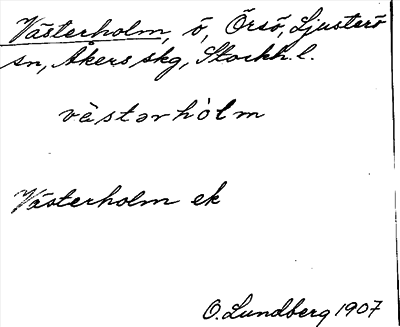 Västerholm, ö, Örsö, Ljusterö
sn, Åkers skg, Stockh.l.
västərhòlm
Västerholm ek
O. Lundberg 1907